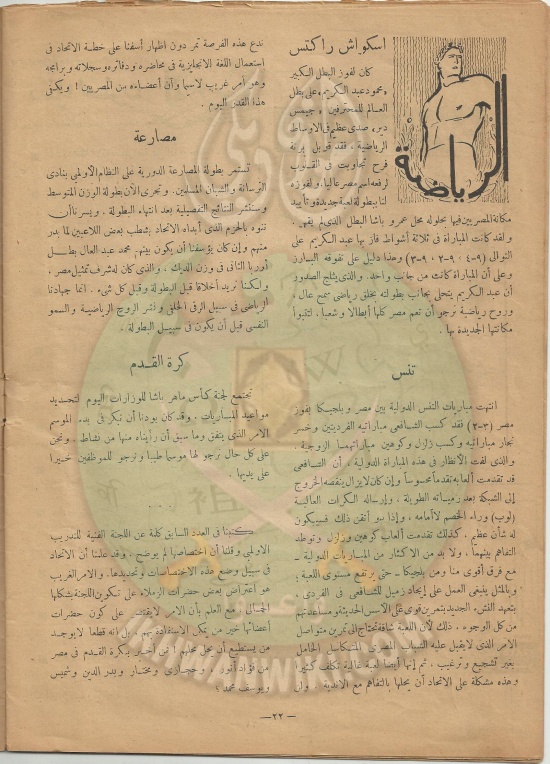 الرياضة
اسكواش راكتس
كان لفوز البطل الكبير
محمود عبد الكريم، على بطل
العالم للمحترفين، جيمس
دير، صدى عظيم فى الاوساط
الرياضية، فقد قوبل برنة
فرح تجاوبت فى القلوب
لرفعه اسم مصر عاليا، ولفوزه
لنا ببطولة لعبة جديدة وتأييد
مكانة المصريين فيها بحلوله محل عمرو باشا البطل الذى لم يقهر
ولقد كانت المباراة فى ثلاثة أشواط فاز بها عبد الكريم على
التوالى (٩-٤؛ ٩-٢؛ ٩-٣) وهذا دليل على تفوقه البارز
وعلى أن المباراة كانت من جانب واحد. والذى يثلج الصدور
أن عبد الكريم يتحلى بجانب بطولته بخلق رياضى سمح عال،
وروح رياضية نرجو أن تعم مصر كلها أبطالا وشعبا، لتتبوأ
مكانتها الجديدة بها.
تنس
انتهت مباريات التنس الدولية بين مصر وبلجيكا بفوز
مصر (٣-٢) فقد كسب الشافعى مباراتيه الفرديتين وخسر
نجار مباراتيه وكسب زلزل وكوهين مباراتهما الزوجية.
والذى لفت الأنظار فى هذه المباراة الدولية، أن الشافعى
قد تقدمت ألعابه تقدما محسوساً وإن كان لا يزال ينقصه الخروج
إلى الشبكة بعد رمياته الطويلة، وإرساله الكرات العالية
(لوب) وراء الخصم لا أمامه، وإذا هو أتقن ذلك فسيكون
له شأن عظيم. كذلك تقدمت ألعاب كوهين وزلزل وتوطد
التفاهم بينهما، ولا بد من الاكثار من المباريات الدولية ـ
مع فرق أقوى منا ومن بلجيكا ـ حتى يرتفع مستوى اللعبة؛
وبالمثل ينبغى العمل على إيجاد زميل للشافعى فى الفردى،
بتعهد النشء الجديد بتمرين قوى على الأسس الحديثة ومساعدتهم
من كل الوجوه. ذلك لأن اللعبة شاقة تحتاج إلى تمرين متواصل
الأمر الذى لا يقبل عليه الشباب المصرى المتكاسل الخامل
بغير تشجيع وترغيب. ثم إنها أيضا لعبة غالية تكلف كثيرا
وهذه مشكلة على الاتحاد أن يحلها بالتفاهم مع الاندية. ولن
ندع هذه الفرصة تمر دون اظهار أسفنا على خطة الاتحاد فى
استعمال اللغة الانجليزية فى محاضره ودفاتره وسجلاته وبرامجه
وهو أمر غريب لا سيما وأن أعضاءه من المصريين! ويكفى
هذا القدر اليوم.
مصارعة
تستمر بطولة المصارعة الدورية على النظام الاولمبى بنادى
الترسانة والشبان المسلمين. وتجرى الآن بطولة الوزن المتوسط
وستنشر النتائج التفصيلية بعد انتهاء البطولة. ويسرنا أن
ننوه بالحزم الذى أبداه الاتحاد بشطب بعض اللاعبين لما بدر
منهم وإن كان يؤسفنا أن يكون بينهم محمد عبد العال بطل
أوربا الثانى فى وزن الديك، والذى كان له شرف تمثيل مصر،
ولكننا نريد أخلاقا قبل البطولة وقبل كل شىء. انما جهادنا
الرياضى فى سبيل الرقى الخلقى ونشر الروح الرياضية والسمو
النفسى قبل أن يكون فى سبيل البطولة.
كرة القدم
تجتمع لجنة كأس ماهر باشا للوزارات اليوم لتحديد
مواعيد المباريات. وقد كان بودنا أن تبكر فى بدء الموسم
الامر الذى يتفق وما سبق أن رأيناه منها من نشاط. ونحن
على كل حال نرجو لها موسما طيبا ونرجو للموظفين خيرا
على يديها.
...
كتبنا فى العدد السابق كلمة عن اللجنة الفنية للتدريب
الاولمبى وقلنا أن اختصاصها لم يوضح. وقد علمنا أن الاتحاد
فى سبيل وضع هذه الاختصاصات وتحديدها. والامر الغريب
هو اعتراض بعض حضرات الزملاء على تكوين اللجنة بشكلها
الحالى، مع العلم بأن الامر لا يقتصر على كون حضرات
أعضائها خير من يمكن الاستفادة بهم، بل انه قطعا لا يوجد
من يستطيع أن يحل محلهم! فمن أخبر بكرة القدم فى مصر
من فؤاد أنور، وحجازى، ومختار، وبدر الدين، وشميس
ويوسف محمد؟
— ٢٢ —